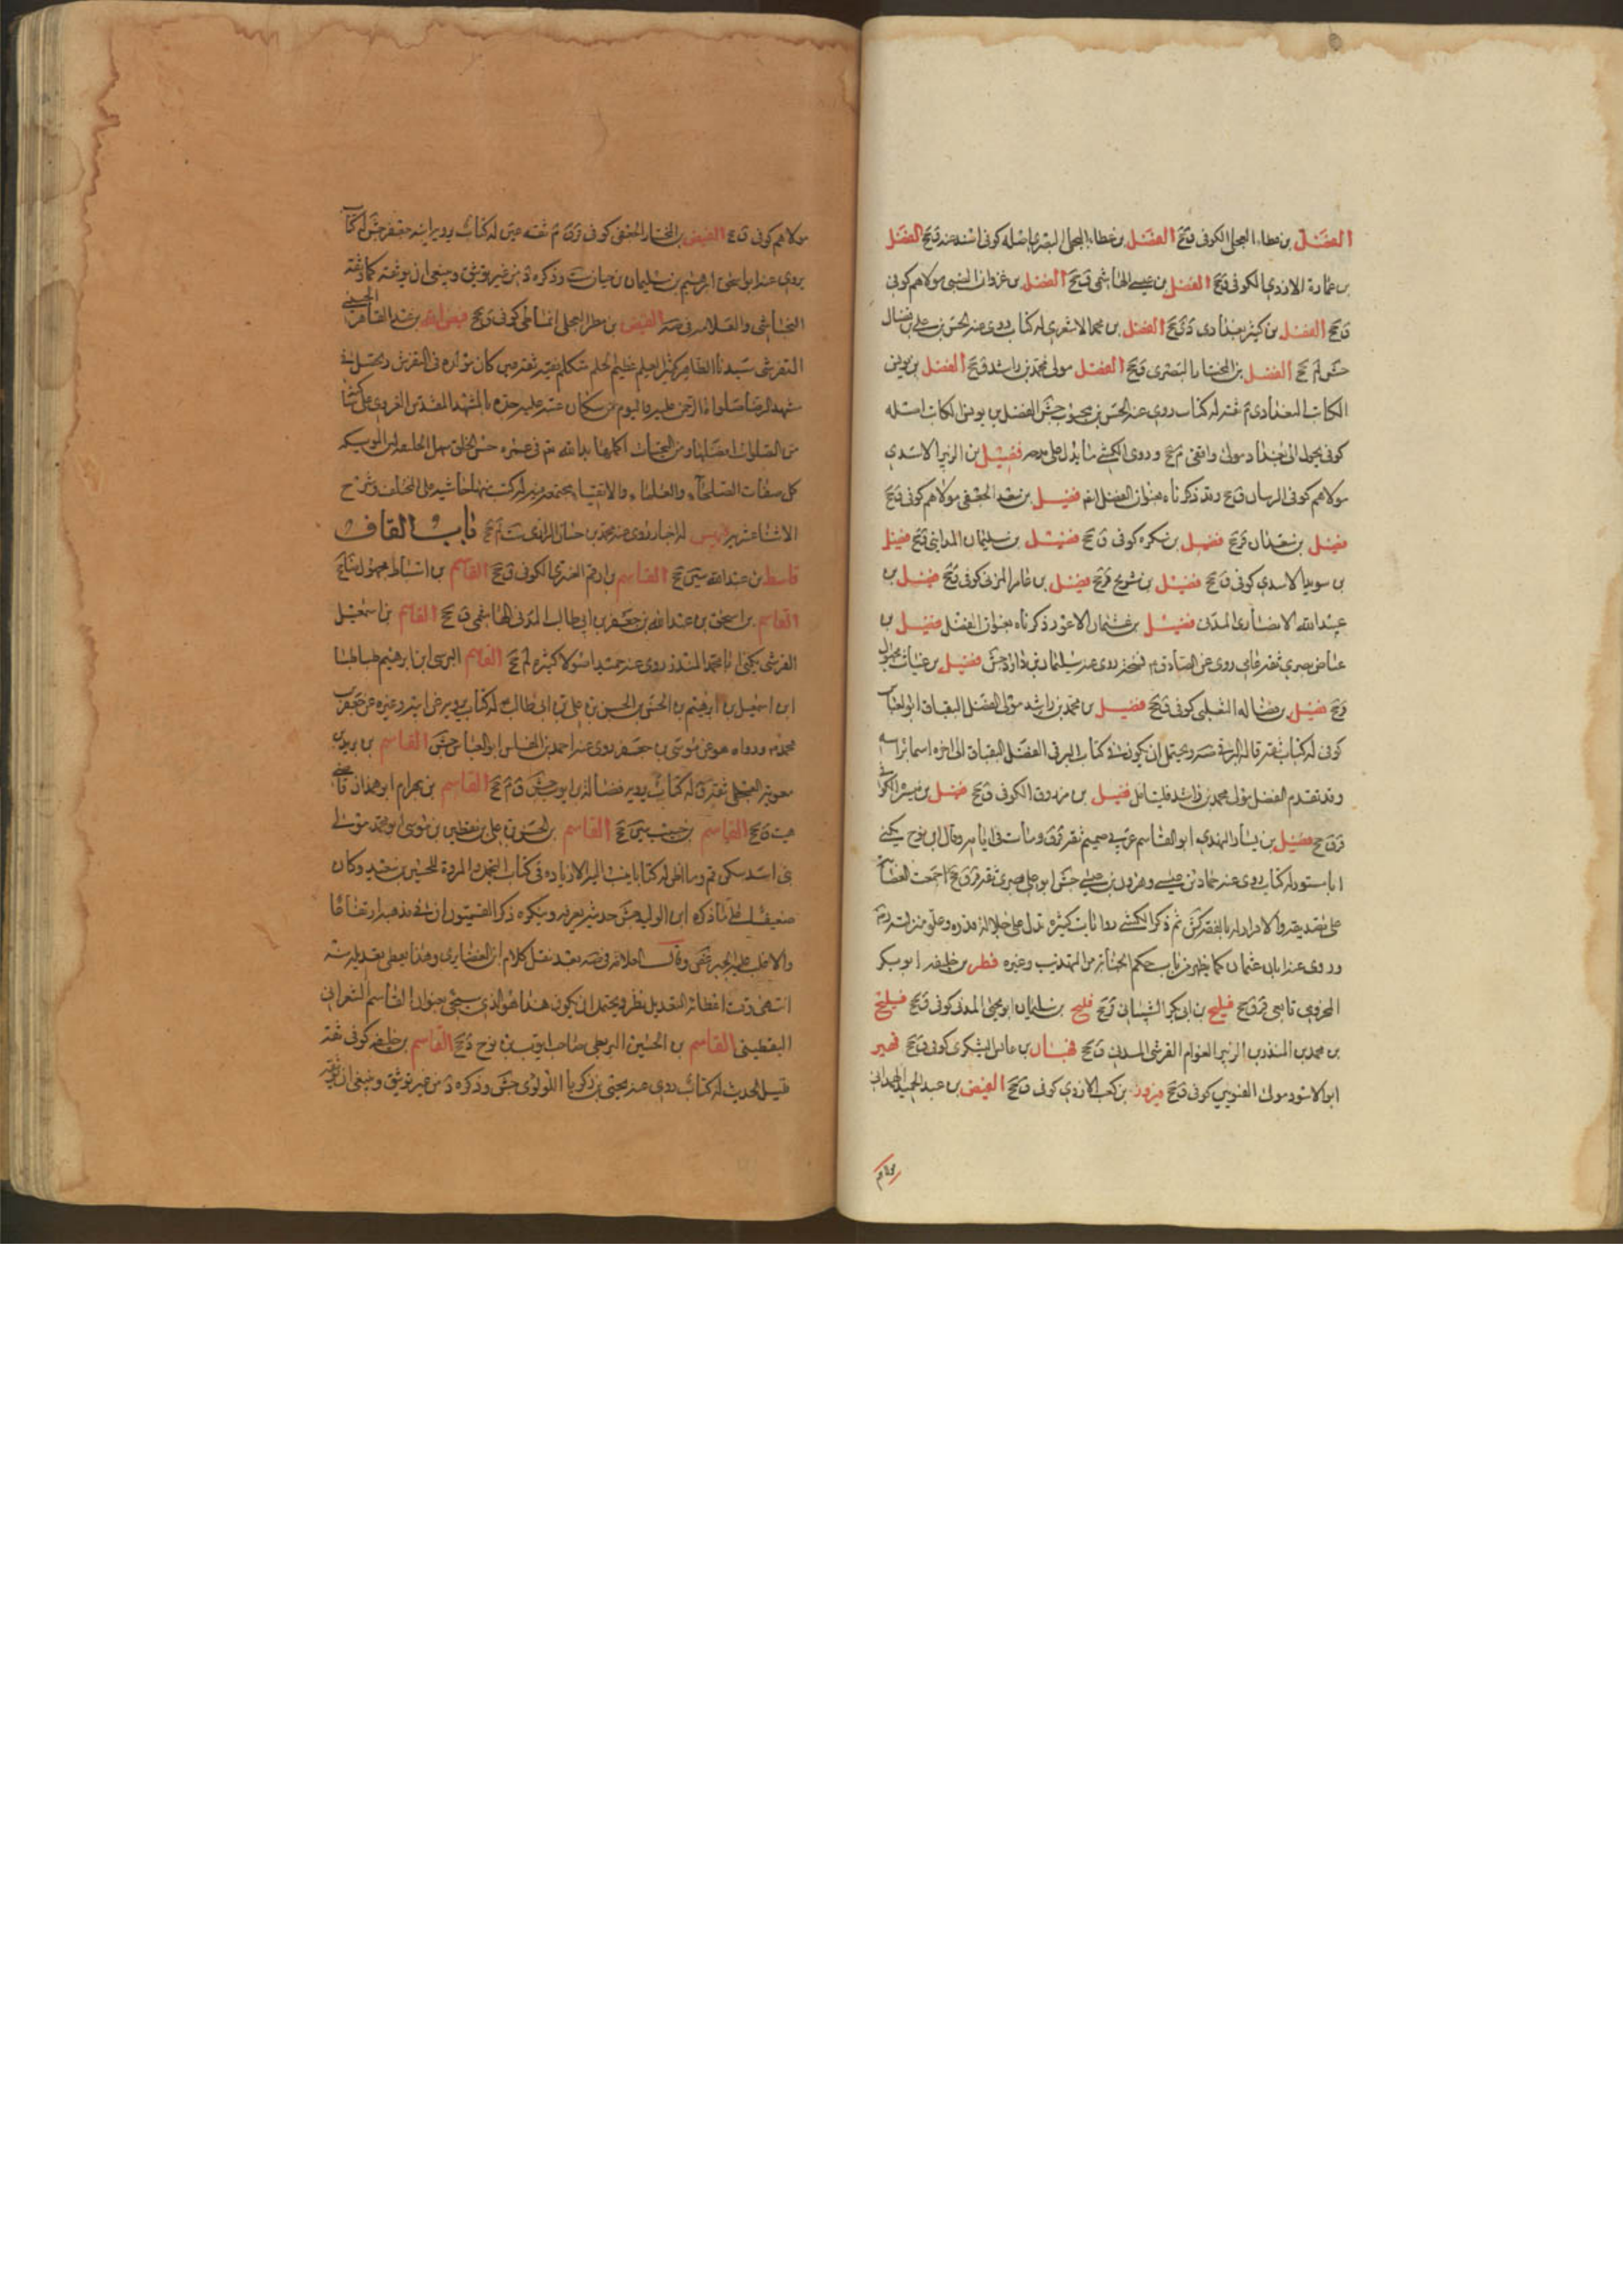 الفضل بن عطاء العجلي الكوفي ق جخ الفضل بن عطاء العجلي البصري اصله كوفي اسند عنه ق جخ الفضل
بن عمارة الازدي الكوفي ق جخ الفضل بن عيسى الهاشمي ق جخ الفضل بن غزوان الضبي مولاهم كوفي
ق جخ الفضل بن كثير بغدادي دي جخ الفضل بن محمد الاشعري له كتاب روى عنه الحسن بن علي بن فضال
جش لم جخ الفضل بن المختار البصري ق جخ الفضل مولى محمد بن راشد ق جخ الفضل بن يونس
الكاتب البغدادي م ثقة له كتاب روى عنه الحسن بن محبوب جش الفضل بن يونس الكاتب اصله
كوفي تحول الى بغداد مولى واقفي م جخ وروى الكشي ما يدل على مدحه فضيل بن الزبير الاسدي
مولاهم كوفي الرسان ق جخ وقد ذكرناه بعنوان الفضل ايضا فضيل بن سعد الجعفي مولاهم كوفي ق جخ
فضيل بن سعدان ق جخ فضيل بن سكره كوفي ق جخ فضيل بن سليمان المدايني ق جخ فضيل
بن سويد الاسدي كوفي ق جخ فضيل بن شريح ق جخ فضيل بن عامر المزني كوفي ق جخ فضيل بن
عبد الله الانصاري المدني فضيل بن عثمان الاعور ذكرناه بعنوان الفضل فضيل بن
عياض بصري ثقة عامي روى عن الصادق نسخة روى عنه سليمان بن داود جش فضيل بن غياث مجهول
ق جخ فضيل بن فضالة التغلبي كوفي ق جخ فضيل بن محمد بن راشد مولى الفضل البقباق ابو العباس
كوفي له كتاب ثقة قاله البرقي ويحتمل ان يكون في كتاب البرقي الفضل البقباق الى اخره
وقد تقدم الفضل مولى محمد بن راشد فليتامل فضيل بن مرزوق الكوفي ق جخ فضيل بن ميسر الكوفي
ق جخ فضيل بن يسار النهدي ابو القاسم عربي صميم ثقة ومات في ايامه وقال ابن نوح يكنى
ابا مسور له كتاب روى عنه حماد بن عيسى وهرون بن عيسى جش ابو علي بصري ثقة جخ اجمعت العصابة
على تصديقه والاقرار له بالفقه كش ثم ذكر الكشي روايات كثيرة تدل على جلالة قدره وعلو منزلته
وروى عنه ابان بن عثمان كما يظهر من باب حكم الجنابة من التهذيب وغيره فطر بن خليفة ابو بكر
المخزومي تابعي ق جخ فليح بن ابي بكر الشيباني ق جخ فليح بن سليمان ابو يحيى المدني كوفي ق جخ فليح
بن محمد بن المنذر بن الزبير العوام القرشي المدني ق جخ اليشكري كوفي ق جخ فهير
ابو الاسود مولى كوفي ق جخ فيروز بن كعب الازدي كوفي ق جخ الفيض بن عبد الحميد الهمداني
مولاهم
مولاهم كوفي ق جخ الفيض بن المختار الجعفي كوفي ثقة عين له كتاب يرويه ابنه جعفر جش له كتاب
يروي عنه ابو اسحق ابرهيم بن سليمان بن حيان وذكره من غير توثيق وينبغي ان يوثقه كما وثقه
النجاشي والعلامة الفيض بن مطر العجلي كوفي ق جخ فيض الله بن عبد القاهر الحسيني
التفرشي سيدنا الطاهر كثير العلم عظيم الحلم متكلم فقيه ثقة عين كان مولده في التفرش وتحصيله في
مشهد الرضا صلوات الرحمن عليه واليوم من سكان عتبة عليه جده بالمشهد المقدس الغروي على مشرفه
من الصلوات افضلها ومن التحيات اكملها حسن الخلق سهل الخليقة
كل صفات الصلحاء والعلماء والاتقياء مجتمعة فيه له كتب منها حاشيه على المختلف وشرح
الاثنا عشريه له اخبار روى عنه محمد بن حسان الرازي باب القاف
قاسط بن عبد الله سين جخ القاسم بن ارقم العنزي الكوفي ق جخ القاسم بن اسباط مجهول جخ
القاسم بن اسحق بن عبد الله بن جعفر بن ابي طالب المدني الهاشمي ق جخ القاسم بن اسمعيل
القرشي يكنى ابا محمد المنذر روى عنه حميد اصولا كثيرة لم جخ القاسم الرسي ابن ابرهيم طباطبا
ابن اسمعيل بن ابرهيم بن الحسن بن الحسن بن علي بن ابي طالب له كتاب يرويه عن ابيه وغيره عن جعفر بن
محمد ورواه هو عن موسى بن جعفر روى عنه احمد جش القاسم بن بريد بن
معوية العجلي ثقة له كتاب يرويه فضالة بن ايوب جش ق م جخ القاسم بن بهرام ابو همدان قاضي
هيت ق جخ القاسم بن حبيب سين جخ القاسم بن الحسن بن علي بن يقطين بن موسى ابو محمد مولى
بني اسد سكن قم وما اظن له كتابا ينسب اليه الا زيادة في كتاب التجمل والمروة للحسين بن سعيد وكان
ضعيفا على ما ذكره ابن الوليد جش حديثه نعرفه وينكره ذكر القميون ان في مذهبه ارتفاعا
والاغلب عليه الخير وقال العلامة بعد نقل كلام ابن الغضايري وهذا يعطي تعديله منه
انتهى وفي اعطائه التعديل نظر ويحتمل ان يكون هذا هو الذي سيجي بعنوان القاسم الشعراني
اليقطيني القاسم بن الحسين البزنطي صاحب ايوب بن نوح جخ القاسم بن خليفة كوفي ثقة
قليل الحديث له كتاب روى عنه يحيى بن زكريا اللؤلؤي جش وذكره من غير توثيق وينبغي ان يوثقه